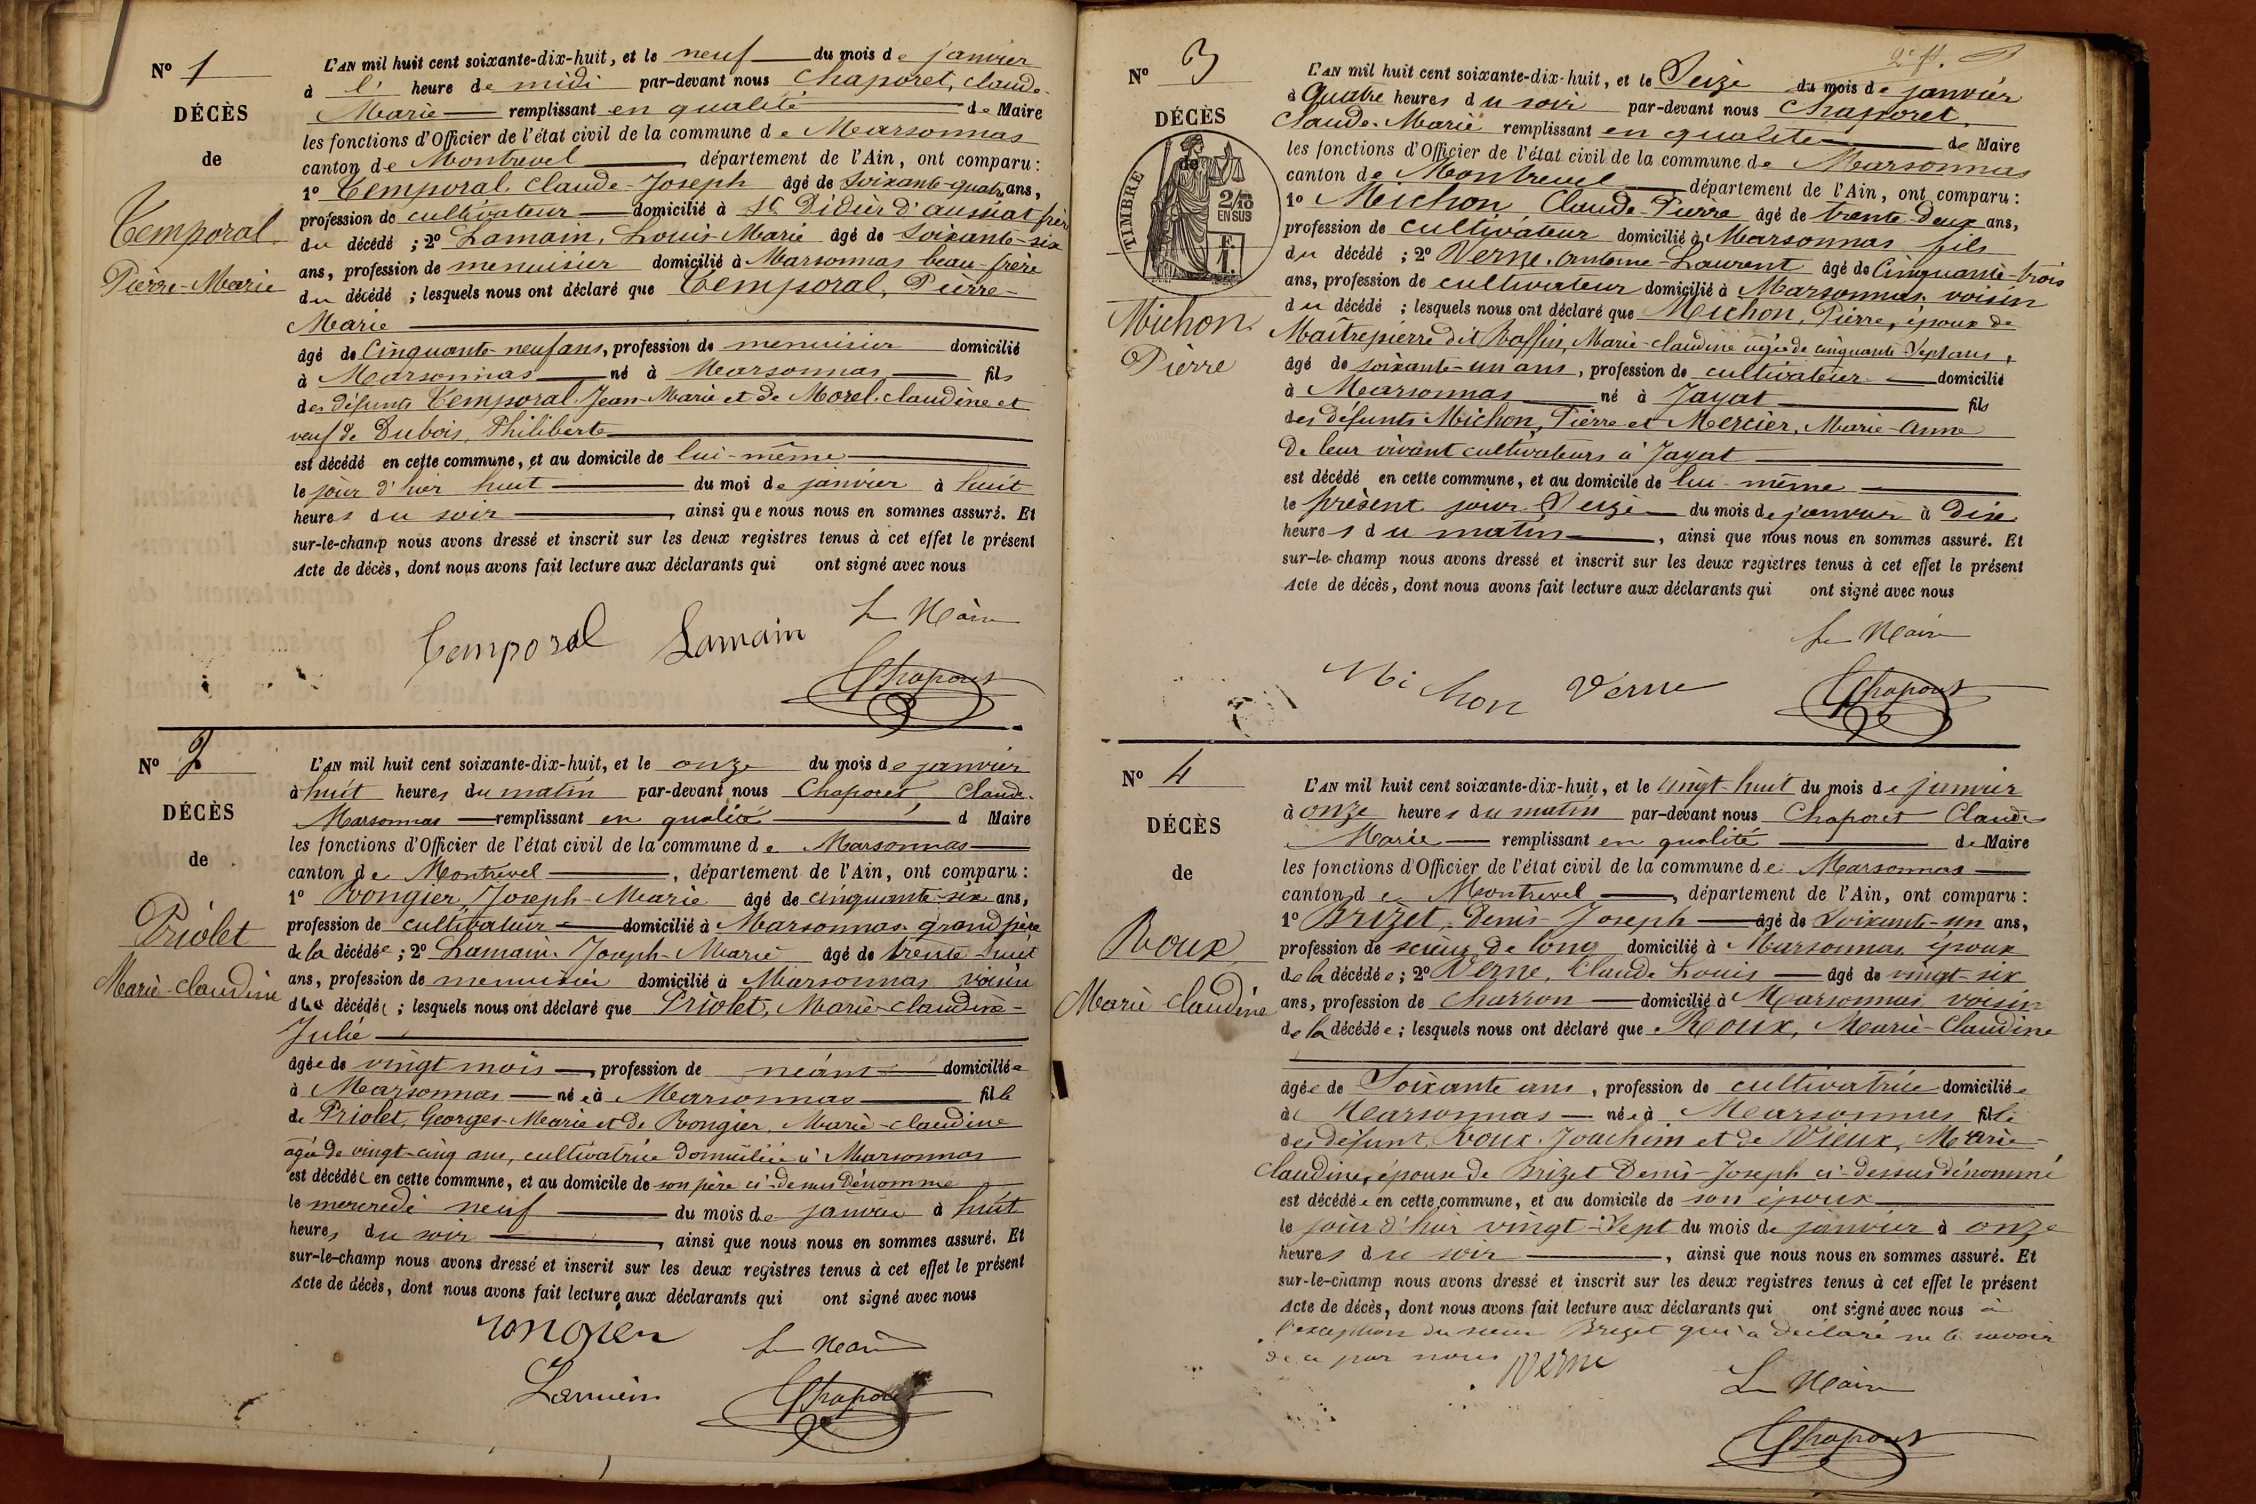 Nº 1
DÉCÈS
de
Temporal
Pierre-Marie
L'AN mil huit cent soixante-dix-huit, et le neuf du mois de janvier
à l' heure de midi par-devant nous Chaporet, Claude-
Marie remplissant en qualité de Maire
les fonctions d'Officier de l'état civil de la commune de Marsonnas
canton de Montrevel, département de l'Ain, ont comparu :
1º Temporal, Claude-Joseph âgé de soixante-quatre ans,
profession de cultivateur domicilié à St Didier d'aussiat frère
du décédé ; 2º Lamain, Louis Marie âgé de soixante-six
ans, profession de menuisier domicilié à Marsonnas beau-frère
du décédé ; lesquels nous ont déclaré que Temporal, Pierre-
Marie
âgé de Cinquante-neuf ans, profession de menuisier domicilié
à Marsonnas né à Marsonnas fils
des défunts Temporal, Jean-Marie et de Morel, claudine et
veuf de Dubois, Philiberte
est décédé en cette commune, et au domicile de lui-même
le jour d'hier huit du moi de janvier à huit
heures du soir, ainsi que nous nous en sommes assuré. Et
sur-le-champ nous avons dressé et inscrit sur les deux registres tenus à cet effet le présent
Acte de décès, dont nous avons fait lecture aux déclarants qui ont signé avec nous
Le Maire
Temporal Lamain
Chaporet
Nº 2
DÉCÈS
de
Priolet
Marie-Claudine
L'AN mil huit cent soixante-dix-huit, et le onze du mois de janvier
à huit heures du matin par-devant nous Chaporet, Claude-
Marsonnas remplissant en qualité d Maire
les fonctions d'Officier de l'état civil de la commune de Marsonnas
canton de Montrevel, département de l'Ain, ont comparu :
1º Rongier, Joseph-Marie âgé de cinquante-six ans,
profession de cultivateur domicilié à Marsonnas grand père
de la décédée ; 2º Lamain, Joseph-Marie âgé de trente-huit
ans, profession de menuisier domicilié à Marsonnas voisin
de la décédée ; lesquels nous ont déclaré que Priolet, Marie-Claudine-
Julie
âgée de vingt mois, profession de néant domiciliée
à Marsonnas née à Marsonnas fille
de Priolet, Georges-Marie et de Rongier, Marie-claudine
âgée de vingt-cinq ans, cultivatrice domiciliée à Marsonnas
est décédée en cette commune, et au domicile de son père ci-dessus dénommé
le mercredi neuf du mois de janvier à huit
heures du soir, ainsi que nous nous en sommes assuré. Et
sur-le-champ nous avons dressé et inscrit sur les deux registres tenus à cet effet le présent
Acte de décès, dont nous avons fait lecture aux déclarants qui ont signé avec nous
rongier Le Maire
Lamain Chaporet
2e f.
Nº 3
DÉCÈS
de
TIMBRE
2/10
EN SUS
F.
1.
Michon
Pierre
L'AN mil huit cent soixante-dix-huit, et le Seize du mois de janvier
à Quatre heures du soir par-devant nous Chaporet,
Claude-Marie remplissant en qualité de Maire
les fonctions d'Officier de l'état civil de la commune de Marsonnas
canton de Montrevel, département de l'Ain, ont comparu :
1º Michon Claude-Pierre âgé de trente deux ans,
profession de cultivateur domicilié à Marsonnas fils
du décédé ; 2º Verne, antoine-Laurent âgé de Cinquante-trois
ans, profession de cultivateur domicilié à Marsonnas voisin
du décédé ; lesquels nous ont déclaré que Michon, Pierre, époux de
Maîtrepierre dit Boffin, Marie-claudine âgée de cinquante sept ans,
âgé de soixante-un ans, profession de cultivateur domicilié
à Marsonnas né à Jayat fils
des défunts Michon, Pierre et Mercier, Marie-anne
De leur vivant cultivateurs à Jayat
est décédé en cette commune, et au domicile de lui-même
le présent jour Seize du mois de janvier à Dix
heures du matin, ainsi que nous nous en sommes assuré. Et
sur-le-champ nous avons dressé et inscrit sur les deux registres tenus à cet effet le présent
Acte de décès, dont nous avons fait lecture aux déclarants qui ont signé avec nous
Le Maire
Michon Verne Chaporet
Nº 4
DÉCÈS
de
Roux
Marie Claudine
L'AN mil huit cent soixante-dix-huit, et le vingt-huit du mois de janvier
à onze heures du matin par-devant nous Chaporet Claude
Marie remplissant en qualité de Maire
les fonctions d'Officier de l'état civil de la commune de Marsonnas
canton de Montrevel, département de l'Ain, ont comparu :
1º Brizet, Denis-Joseph âgé de soixante-un ans,
profession de scieur de long domicilié à Marsonnas époux
de la décédée ; 2º Verne, Claude Louis âgé de vingt-six
ans, profession de charron domicilié à Marsonnas voisin
de la décédée ; lesquels nous ont déclaré que Roux, Marie-Claudine
âgée de Soixante ans, profession de cultivatrice domiciliée
à Marsonnas née à Marsonnas fille
des défunts Roux, Joachim et de Vieux, Marie-
Claudine, épouse de Brizet Denis-Joseph ci-dessus dénommé
est décédée en cette commune, et au domicile de son époux
le jour d'hier vingt-sept du mois de janvier à onze
heures du soir, ainsi que nous nous en sommes assuré. Et
sur-le-champ nous avons dressé et inscrit sur les deux registres tenus à cet effet le présent
Acte de décès, dont nous avons fait lecture aux déclarants qui ont signé avec nous à
l'exception du sieur Brizet qui a déclaré ne le savoir
de ce par nous Verne
Le Maire
Chaporet